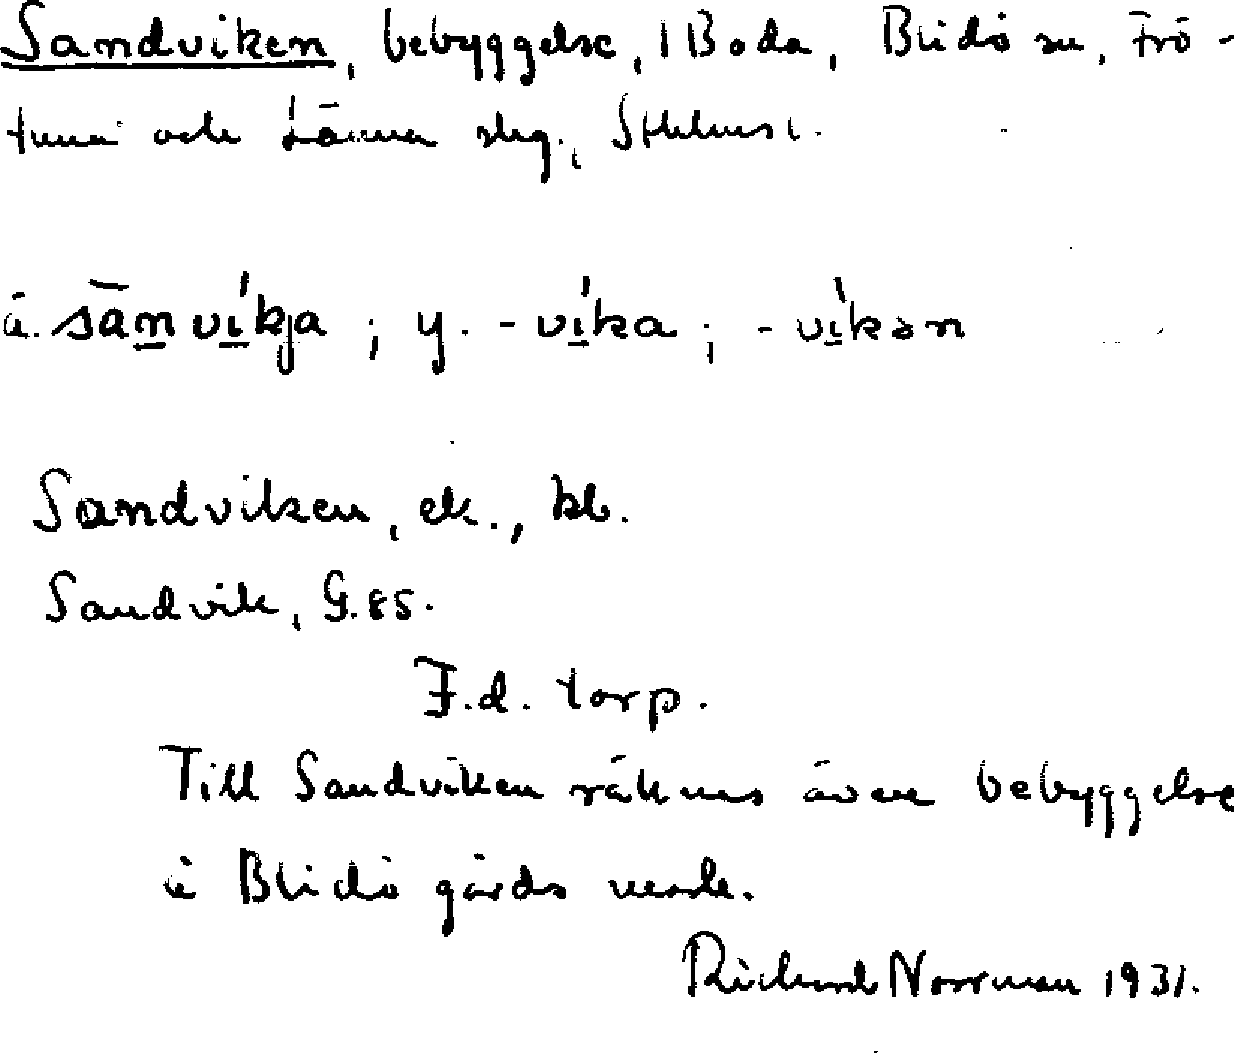 Sandviken, bebyggelse, 1 Boda, Blidö sn, Frö-
tuna och Länna slg., Sthlms l.
ä. sa̱nvi̱kja ; y. -vi̱ka ; -vi̱kən
Sandviken, ek., kb.
Sandvik, G.85.
F.d. torp.
Till Sandviken räknas även bebyggelse
å Blidö gårds mark.
Richard Norrman 1931.